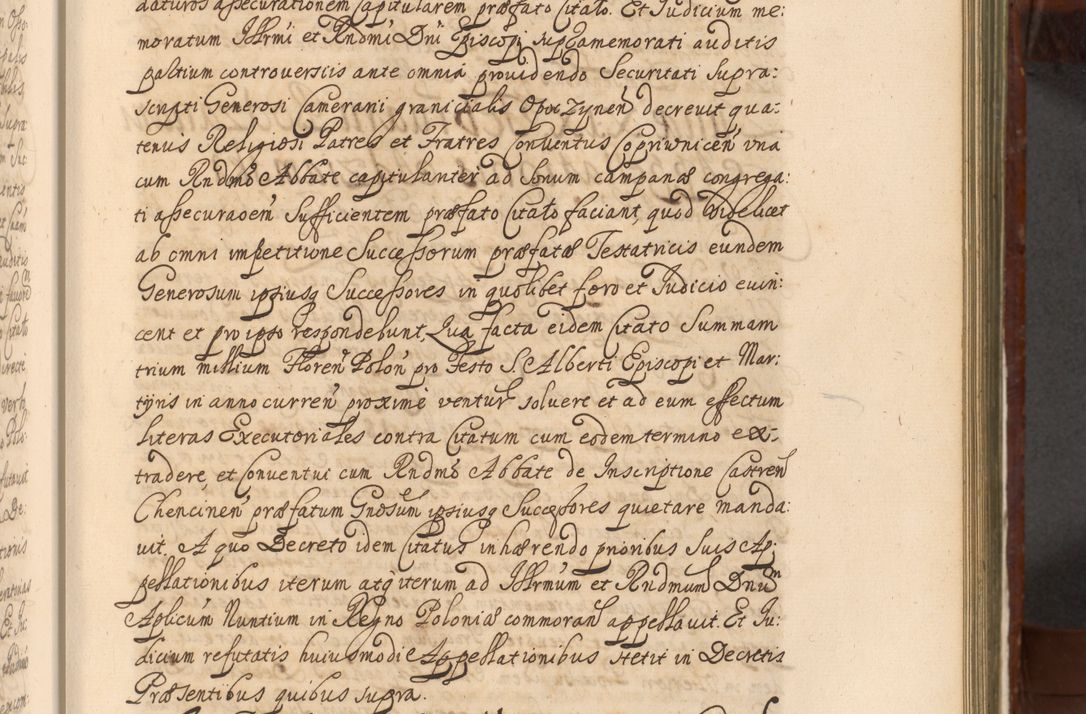 daturos assecurationem capitularem præfato Citato. Et Judicium me:
moratum Illrmi et Rndmi Dni Episcopi supramemorati auditis
paltium controversiis ante omnia providendo Securitati supra:
scripti Generosi Camerarii granicialis Opoczynen̄ decrevit qua:
tenus Religiosi Patres et Fratres Conventus Coprivnicen̄ una
cum Rndmo Abbate capitulariter ad sonum campanæ congrega:
ti assecuraoem̄ sufficientem præfato Citato faciant, quod Videlicet
ab omni impetitione Successorum præfatæ Testatricis eundem
Generosum ipsiusq Successores in quolibet foro et Judicio evin:
cent et pro ipso respondebunt, Qua facta eidem Citato Summam
trium millium Floren̄ Polon̄ pro Festo S. Alberti Episcopi et Mar:
tyris in anno curren̄ proximè ventur̄ solvere et ad eum effectum
literas Executoriales contra Citatum cum eodem termino ex:
tradere, et Conventui cum Rndmo Abbate de Inscriptione Castren̄
Chencinen̄ præfatum Gnosum ipsiusq Successores quietare manda:
vit. A quo Decreto idem Citatus inhærendo prioribus suis Ap:
pellationibus iterum atq iterum ad Illrmum et Rndmum Dnum
Aplicum Nuntium in Regno Poloniæ commoran̄ appellavit. Et Ju:
dicium refutatis huiusmodi Appellationibus stetit in Decretis
Præsentibus quibus supra.